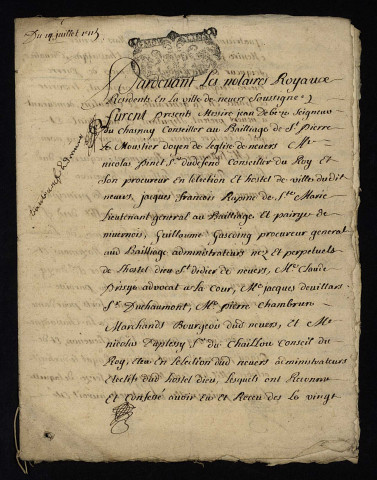 Du 19 juillet 1715
Pardevant Les notaires Royaux
Residents En La ville de nevers Soussignez
furent presents Messire jean Debéze Seigneur
du chasnay Conseiller au Bailliage de St. pierre
Le Moustier doyen de Leglise de nevers Me
nicolas pinet Sr. dudefend Conseiller du Roy et
Son procureur en Lelection et hostel de ville dudit
nevers, jacques francois Rapine de Ste Marie
Lieutenant general au Bailliage et pairye de
nivernois, Guillaume Gascoing procureur general
aud Bailliage administrateurs nez et perpetuels
de Lhostel dieu St didier de nevers, Me Claude
prisye advocat a La Cour, Me jacques devillars
Sr. Duchaumont, Me pierre Chambrun
Marchands Bourgeois dud nevers, et Me
nicolas Sr. du Chaillou Conseil du
Roy, Eleu en Lelection dud nevers administrateurs
Electifs dud hostel dieu, Lesquels ont Reconnu
Et Confessé avoir Eu et Receu des Lo vingt